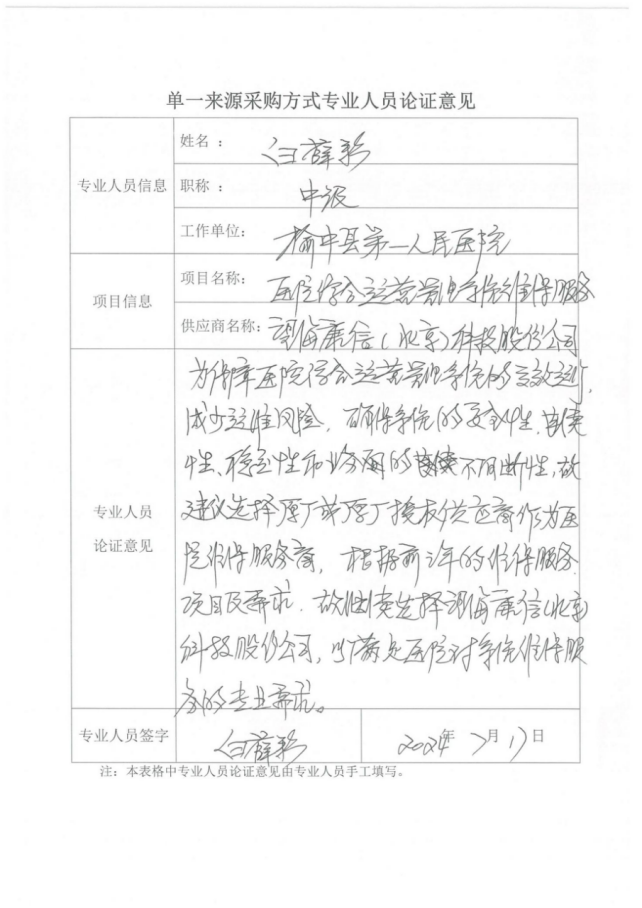 单一来源采购方式专业人员论证意见
专业人员信息
姓名：白薛彩
职称：中级
工作单位：榆中县第一人民医院
项目信息
项目名称：医院综合运营管理系统维保服务
供应商名称：望海康信（北京）科技股份公司
专业人员
论证意见
为保障医院综合运营管理系统的高效运行，
减少运维风险，确保系统的安全性、连续
性、稳定性和业务间的不间断性，故
建议选择原厂或原厂授权供应商作为医
院维保服务商，根据前三年的维保服务
项目及需求，故继续选择望海康信（北京）
科技股份公司，以满足医院对系统维保服
务的专业需求。
专业人员签字
白薛彩
2024年7月17日
注：本表格中专业人员论证意见由专业人员手工填写。